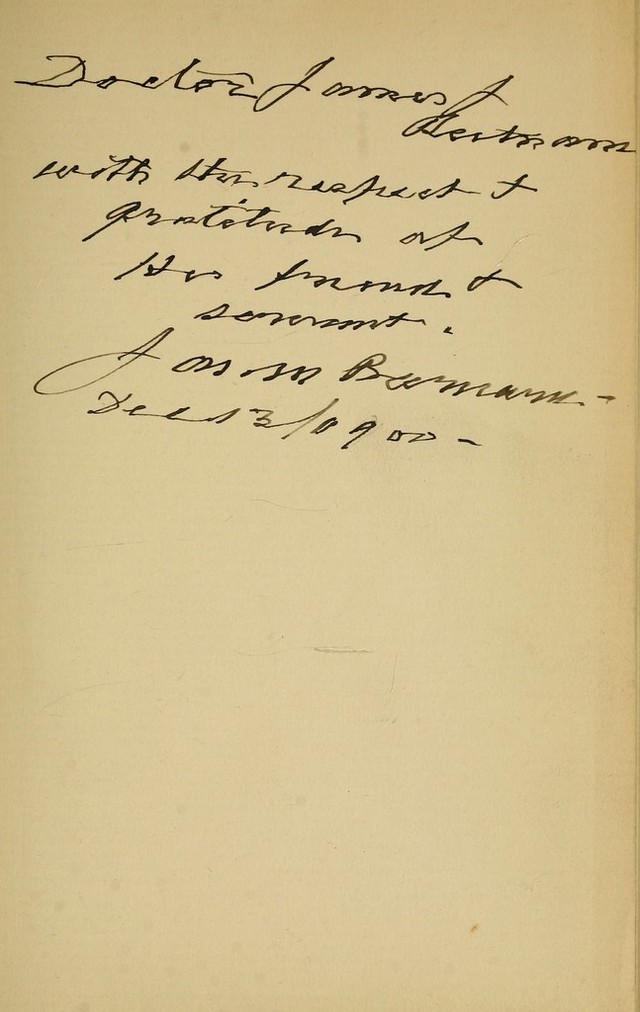 Doctor James J
Putnam
with the respect &
gratitude of
His friend &
servant.
James M Barnard -
Dec 13/1900 -